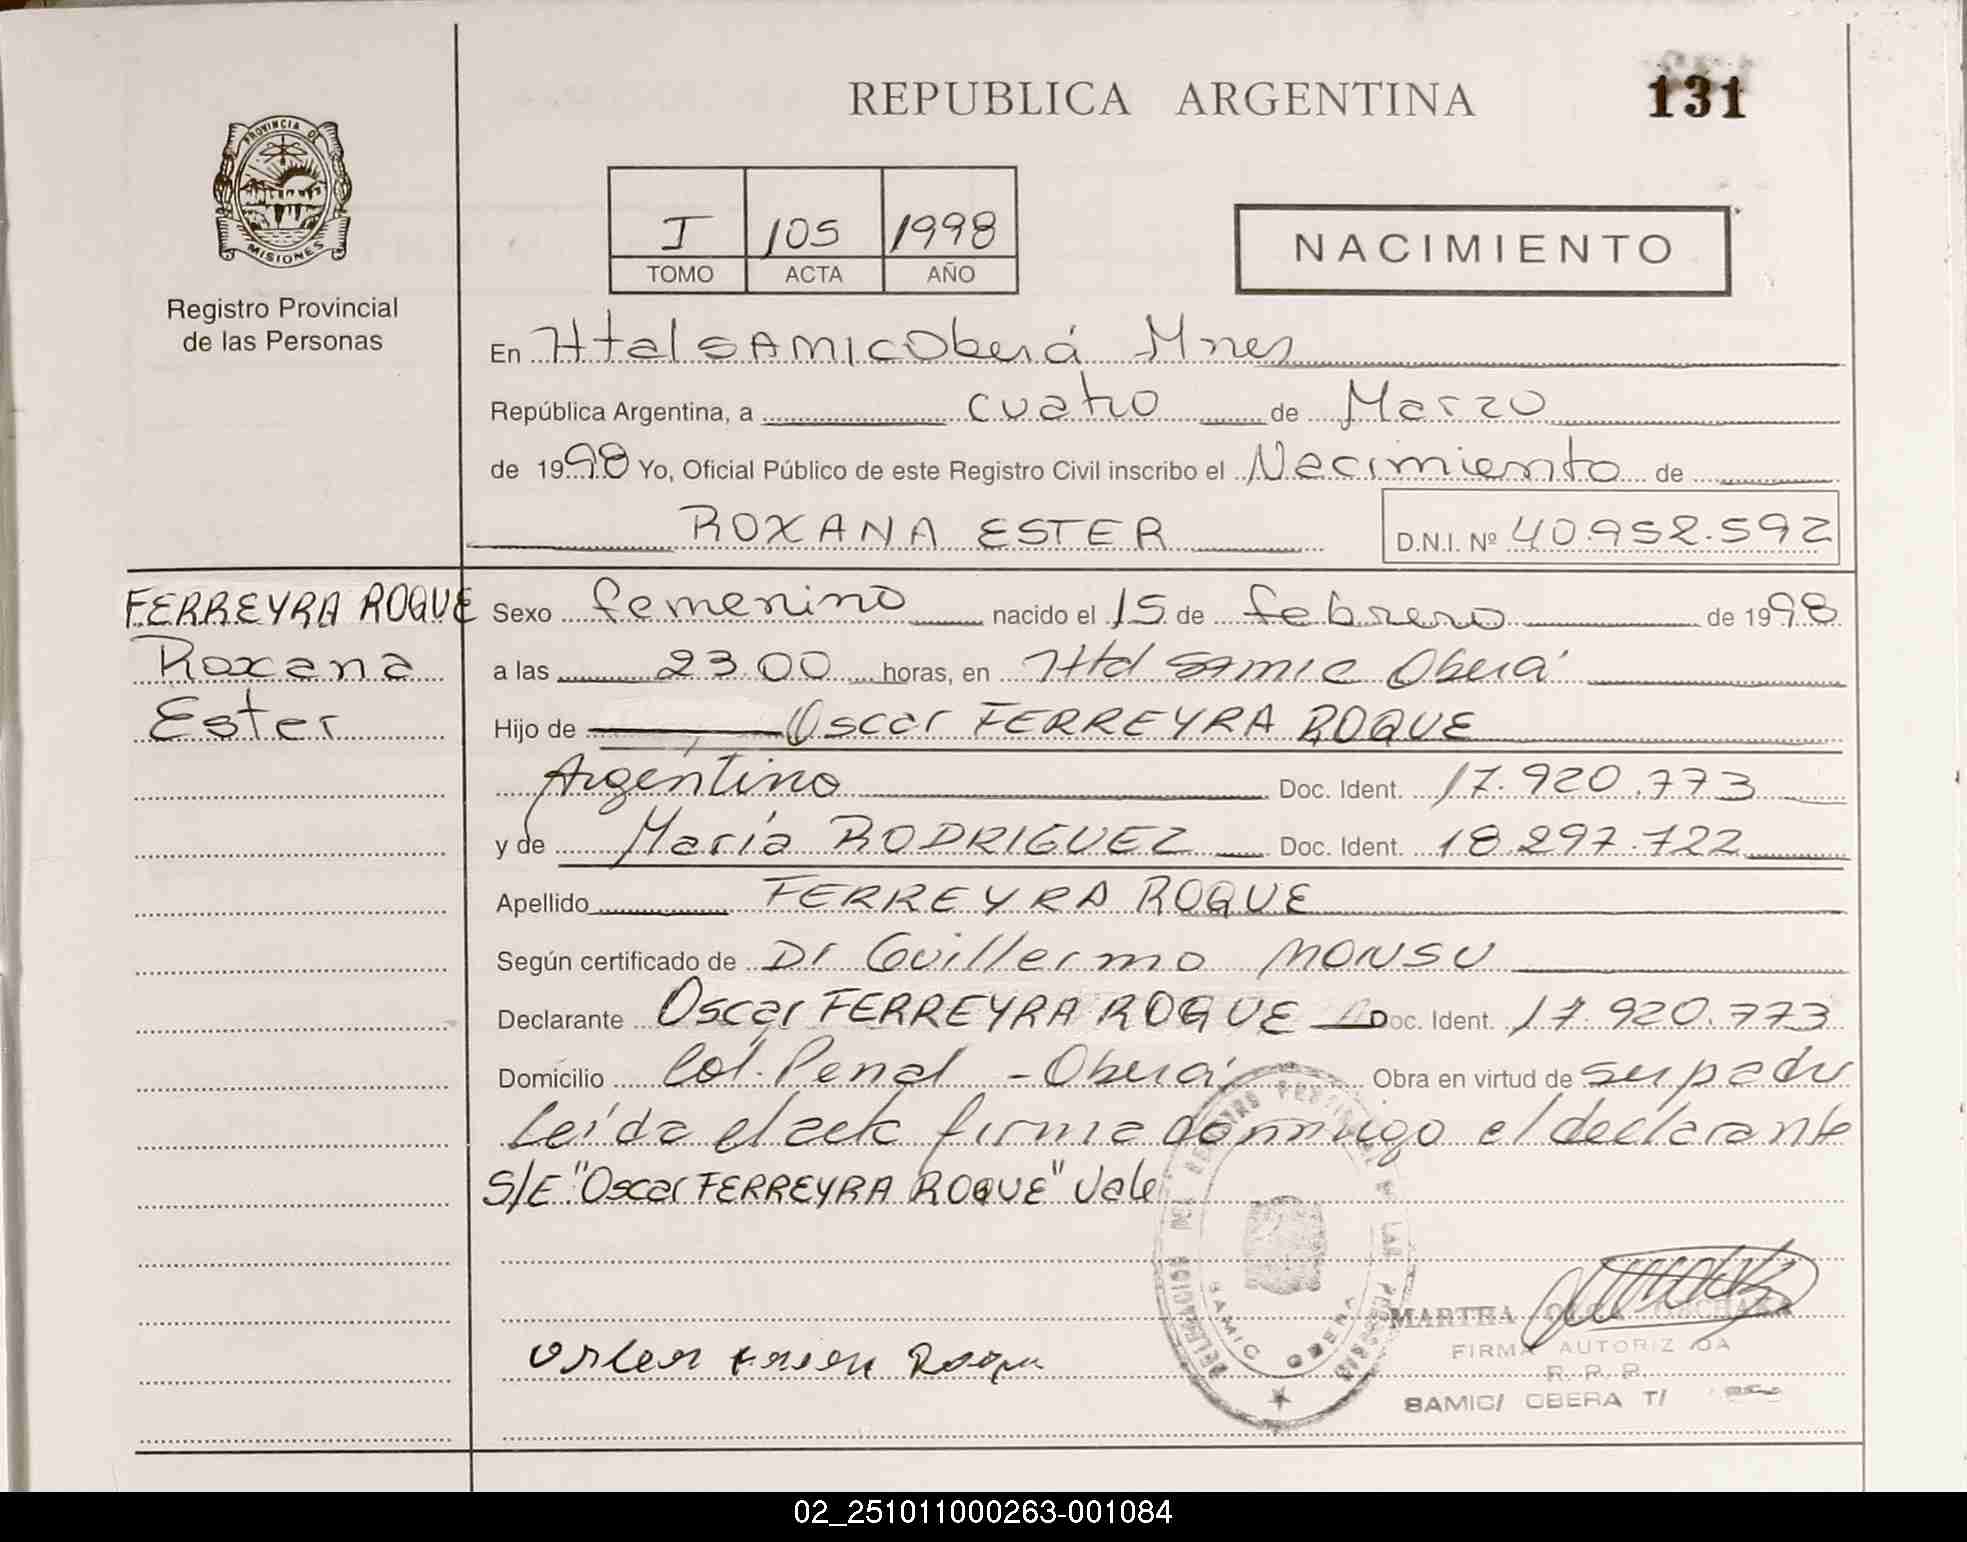 REPUBLICA ARGENTINA
131
PROVINCIA DE
MISIONES
Registro Provincial
de las Personas
I 105 1998
TOMO ACTA AÑO
NACIMIENTO
En Htal SAMIC Oberá Mnes
República Argentina, a cuatro de Marzo
de 1998 Yo, Oficial Público de este Registro Civil inscribo el Nacimiento de
ROXANA ESTER D.N.I. Nº 40.952.592
FERREYRA ROQUE
Roxana
Ester
Sexo femenino nacido el 15 de febrero de 1998
a las 23.00 horas, en Htal SAMIC Oberá
Hijo de Oscar FERREYRA ROQUE
Argentino Doc. Ident. 17.920.773
y de María RODRIGUEZ Doc. Ident. 18.297.722
Apellido FERREYRA ROQUE
Según certificado de Dr Guillermo MONSU
Declarante Oscar FERREYRA ROQUE Doc. Ident. 17.920.773
Domicilio Col. Penal - Oberá Obra en virtud de ser padre
Leída el acta firma conmigo el declarante
S/E "Oscar FERREYRA ROQUE" Vale
DELEGACION DEL REGISTRO PROVINCIAL DE LAS PERSONAS
SAMIC OBERA
MARTHA
FIRMA AUTORIZADA
R. P. P.
SAMIC/ OBERA T/
02_251011000263-001084